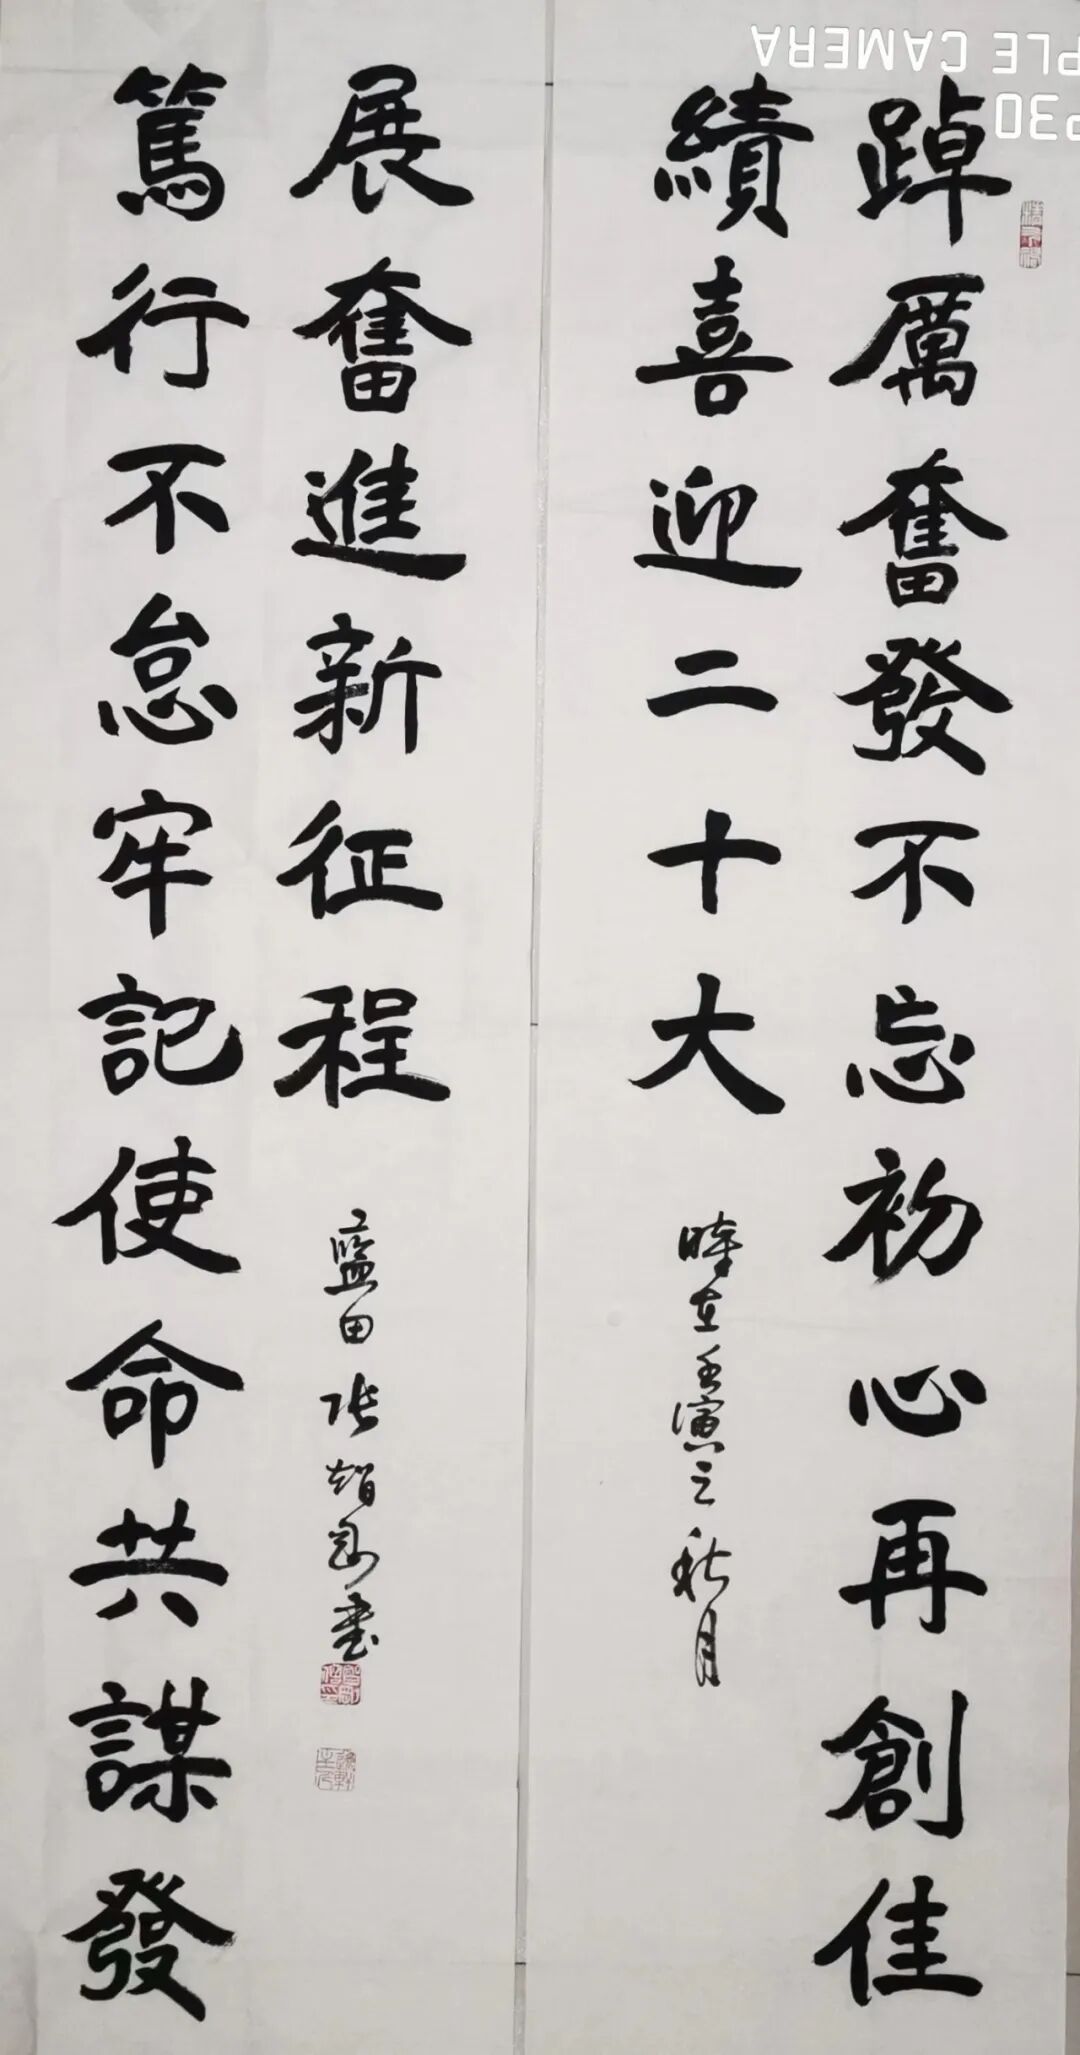 踔厲奮發不忘初心再創佳
績喜迎二十大
時在壬寅之秋月
篤行不怠牢記使命共謀發
展奮進新征程
藍田張智剛書
PLE CAMERA
P30